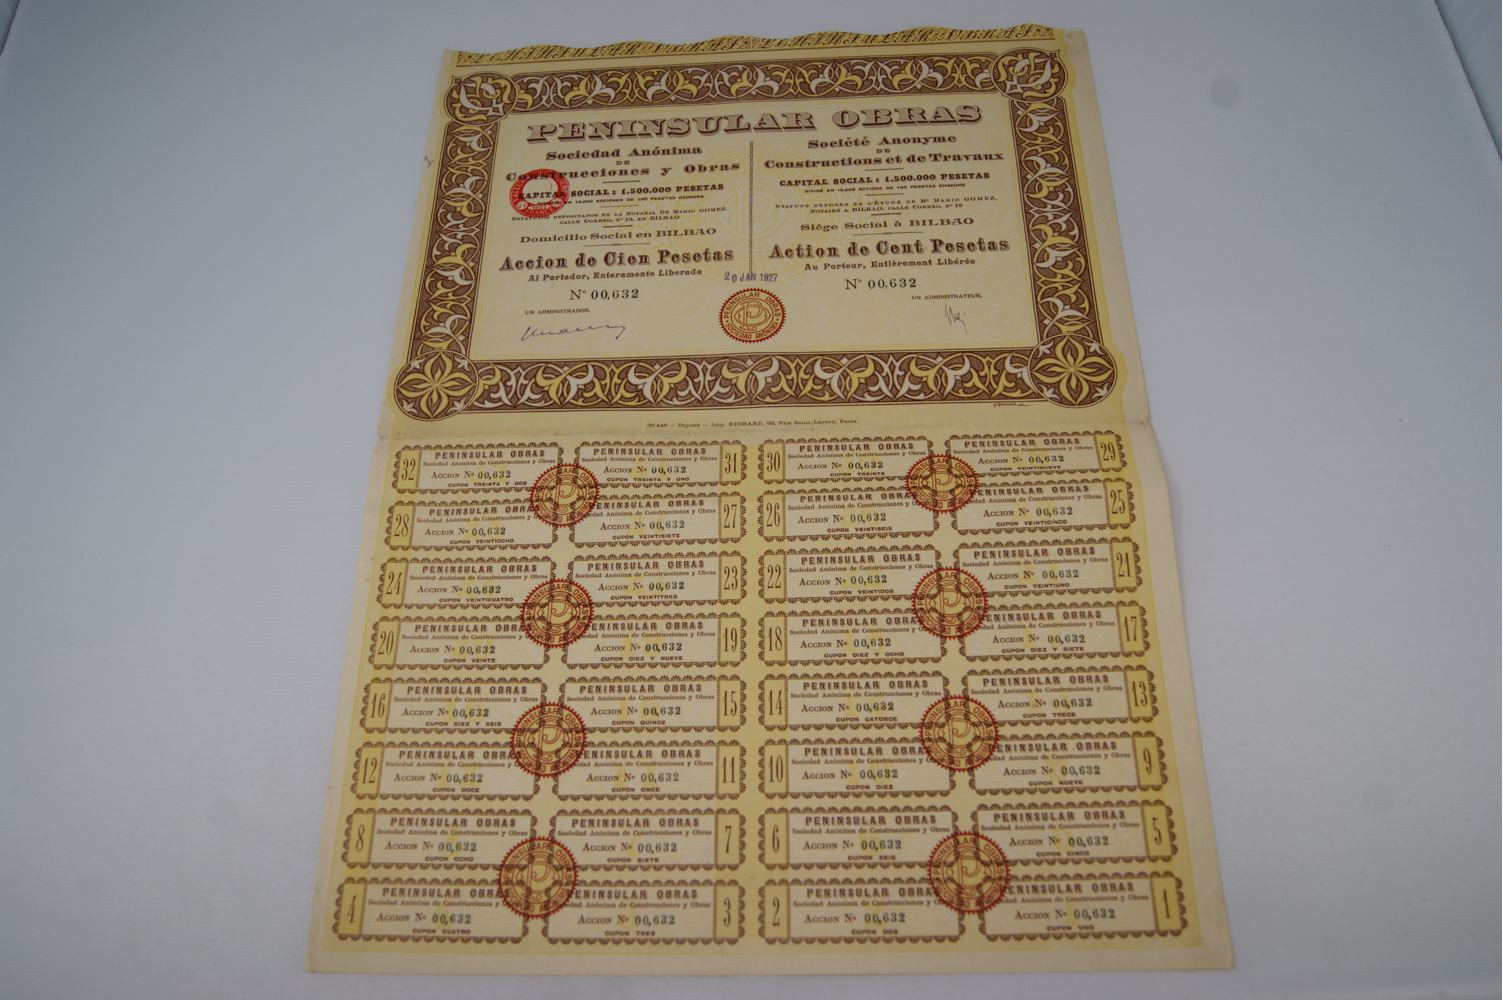 PENINSULAR OBRAS
Sociedad Anónima
DE
Construcciones y Obras
CAPITAL SOCIAL : 1.500.000 PESETAS
EN 15.000 ACCIONES DE 100 PESETAS CADAUNA
ESTATUTOS DEPOSITADOS EN LA NOTARIA DE MARIO GOMEZ,
CALLE CORREO, Nº 19, EN BILBAO
Domicilio Social en BILBAO
Accion de Cien Pesetas
Al Portador, Enteramente Liberada
Nº 00,632
UN ADMINISTRADOR,
Société Anonyme
DE
Constructions et de Travaux
CAPITAL SOCIAL : 1.500.000 PESETAS
DIVISÉ EN 15.000 ACTIONS DE 100 PESETAS CHACUNE
STATUTS DÉPOSÉS EN L'ÉTUDE DE Mᵉ MARIO GOMEZ,
NOTAIRE A BILBAO, CALLE CORREO, Nº 19
Siège Social à BILBAO
Action de Cent Pesetas
Au Porteur, Entièrement Libérée
Nº 00,632
UN ADMINISTRATEUR,
20 JAN 1927
PENINSULAR OBRAS
SOCIEDAD ANÓNIMA
Déposé — Imp. RICHARD, 92, Rue Saint-Lazare, Paris.
32 PENINSULAR OBRAS
Sociedad Anónima de Construcciones y Obras
ACCION Nº 00,632
CUPON TREINTA Y DOS
PENINSULAR OBRAS 31
Sociedad Anónima de Construcciones y Obras
ACCION Nº 00,632
CUPON TREINTA Y UNO
30 PENINSULAR OBRAS
Sociedad Anónima de Construcciones y Obras
ACCION Nº 00,632
CUPON TREINTA
PENINSULAR OBRAS 29
Sociedad Anónima de Construcciones y Obras
ACCION Nº 00,632
CUPON VEINTINUEVE
28 PENINSULAR OBRAS
Sociedad Anónima de Construcciones y Obras
ACCION Nº 00,632
CUPON VEINTIOCHO
PENINSULAR OBRAS 27
Sociedad Anónima de Construcciones y Obras
ACCION Nº 00,632
CUPON VEINTISIETE
26 PENINSULAR OBRAS
Sociedad Anónima de Construcciones y Obras
ACCION Nº 00,632
CUPON VEINTISEIS
PENINSULAR OBRAS 25
Sociedad Anónima de Construcciones y Obras
ACCION Nº 00,632
CUPON VEINTICINCO
24 PENINSULAR OBRAS
Sociedad Anónima de Construcciones y Obras
ACCION Nº 00,632
CUPON VEINTICUATRO
PENINSULAR OBRAS 23
Sociedad Anónima de Construcciones y Obras
ACCION Nº 00,632
CUPON VEINTITRES
22 PENINSULAR OBRAS
Sociedad Anónima de Construcciones y Obras
ACCION Nº 00,632
CUPON VEINTIDOS
PENINSULAR OBRAS 21
Sociedad Anónima de Construcciones y Obras
ACCION Nº 00,632
CUPON VEINTIUNO
20 PENINSULAR OBRAS
Sociedad Anónima de Construcciones y Obras
ACCION Nº 00,632
CUPON VEINTE
PENINSULAR OBRAS 19
Sociedad Anónima de Construcciones y Obras
ACCION Nº 00,632
CUPON DIEZ Y NUEVE
18 PENINSULAR OBRAS
Sociedad Anónima de Construcciones y Obras
ACCION Nº 00,632
CUPON DIEZ Y OCHO
PENINSULAR OBRAS 17
Sociedad Anónima de Construcciones y Obras
ACCION Nº 00,632
CUPON DIEZ Y SIETE
16 PENINSULAR OBRAS
Sociedad Anónima de Construcciones y Obras
ACCION Nº 00,632
CUPON DIEZ Y SEIS
PENINSULAR OBRAS 15
Sociedad Anónima de Construcciones y Obras
ACCION Nº 00,632
CUPON QUINCE
14 PENINSULAR OBRAS
Sociedad Anónima de Construcciones y Obras
ACCION Nº 00,632
CUPON CATORCE
PENINSULAR OBRAS 13
Sociedad Anónima de Construcciones y Obras
ACCION Nº 00,632
CUPON TRECE
12 PENINSULAR OBRAS
Sociedad Anónima de Construcciones y Obras
ACCION Nº 00,632
CUPON DOCE
PENINSULAR OBRAS 11
Sociedad Anónima de Construcciones y Obras
ACCION Nº 00,632
CUPON ONCE
10 PENINSULAR OBRAS
Sociedad Anónima de Construcciones y Obras
ACCION Nº 00,632
CUPON DIEZ
PENINSULAR OBRAS 9
Sociedad Anónima de Construcciones y Obras
ACCION Nº 00,632
CUPON NUEVE
8 PENINSULAR OBRAS
Sociedad Anónima de Construcciones y Obras
ACCION Nº 00,632
CUPON OCHO
PENINSULAR OBRAS 7
Sociedad Anónima de Construcciones y Obras
ACCION Nº 00,632
CUPON SIETE
6 PENINSULAR OBRAS
Sociedad Anónima de Construcciones y Obras
ACCION Nº 00,632
CUPON SEIS
PENINSULAR OBRAS 5
Sociedad Anónima de Construcciones y Obras
ACCION Nº 00,632
CUPON CINCO
4 PENINSULAR OBRAS
Sociedad Anónima de Construcciones y Obras
ACCION Nº 00,632
CUPON CUATRO
PENINSULAR OBRAS 3
Sociedad Anónima de Construcciones y Obras
ACCION Nº 00,632
CUPON TRES
2 PENINSULAR OBRAS
Sociedad Anónima de Construcciones y Obras
ACCION Nº 00,632
CUPON DOS
PENINSULAR OBRAS 1
Sociedad Anónima de Construcciones y Obras
ACCION Nº 00,632
CUPON UNO